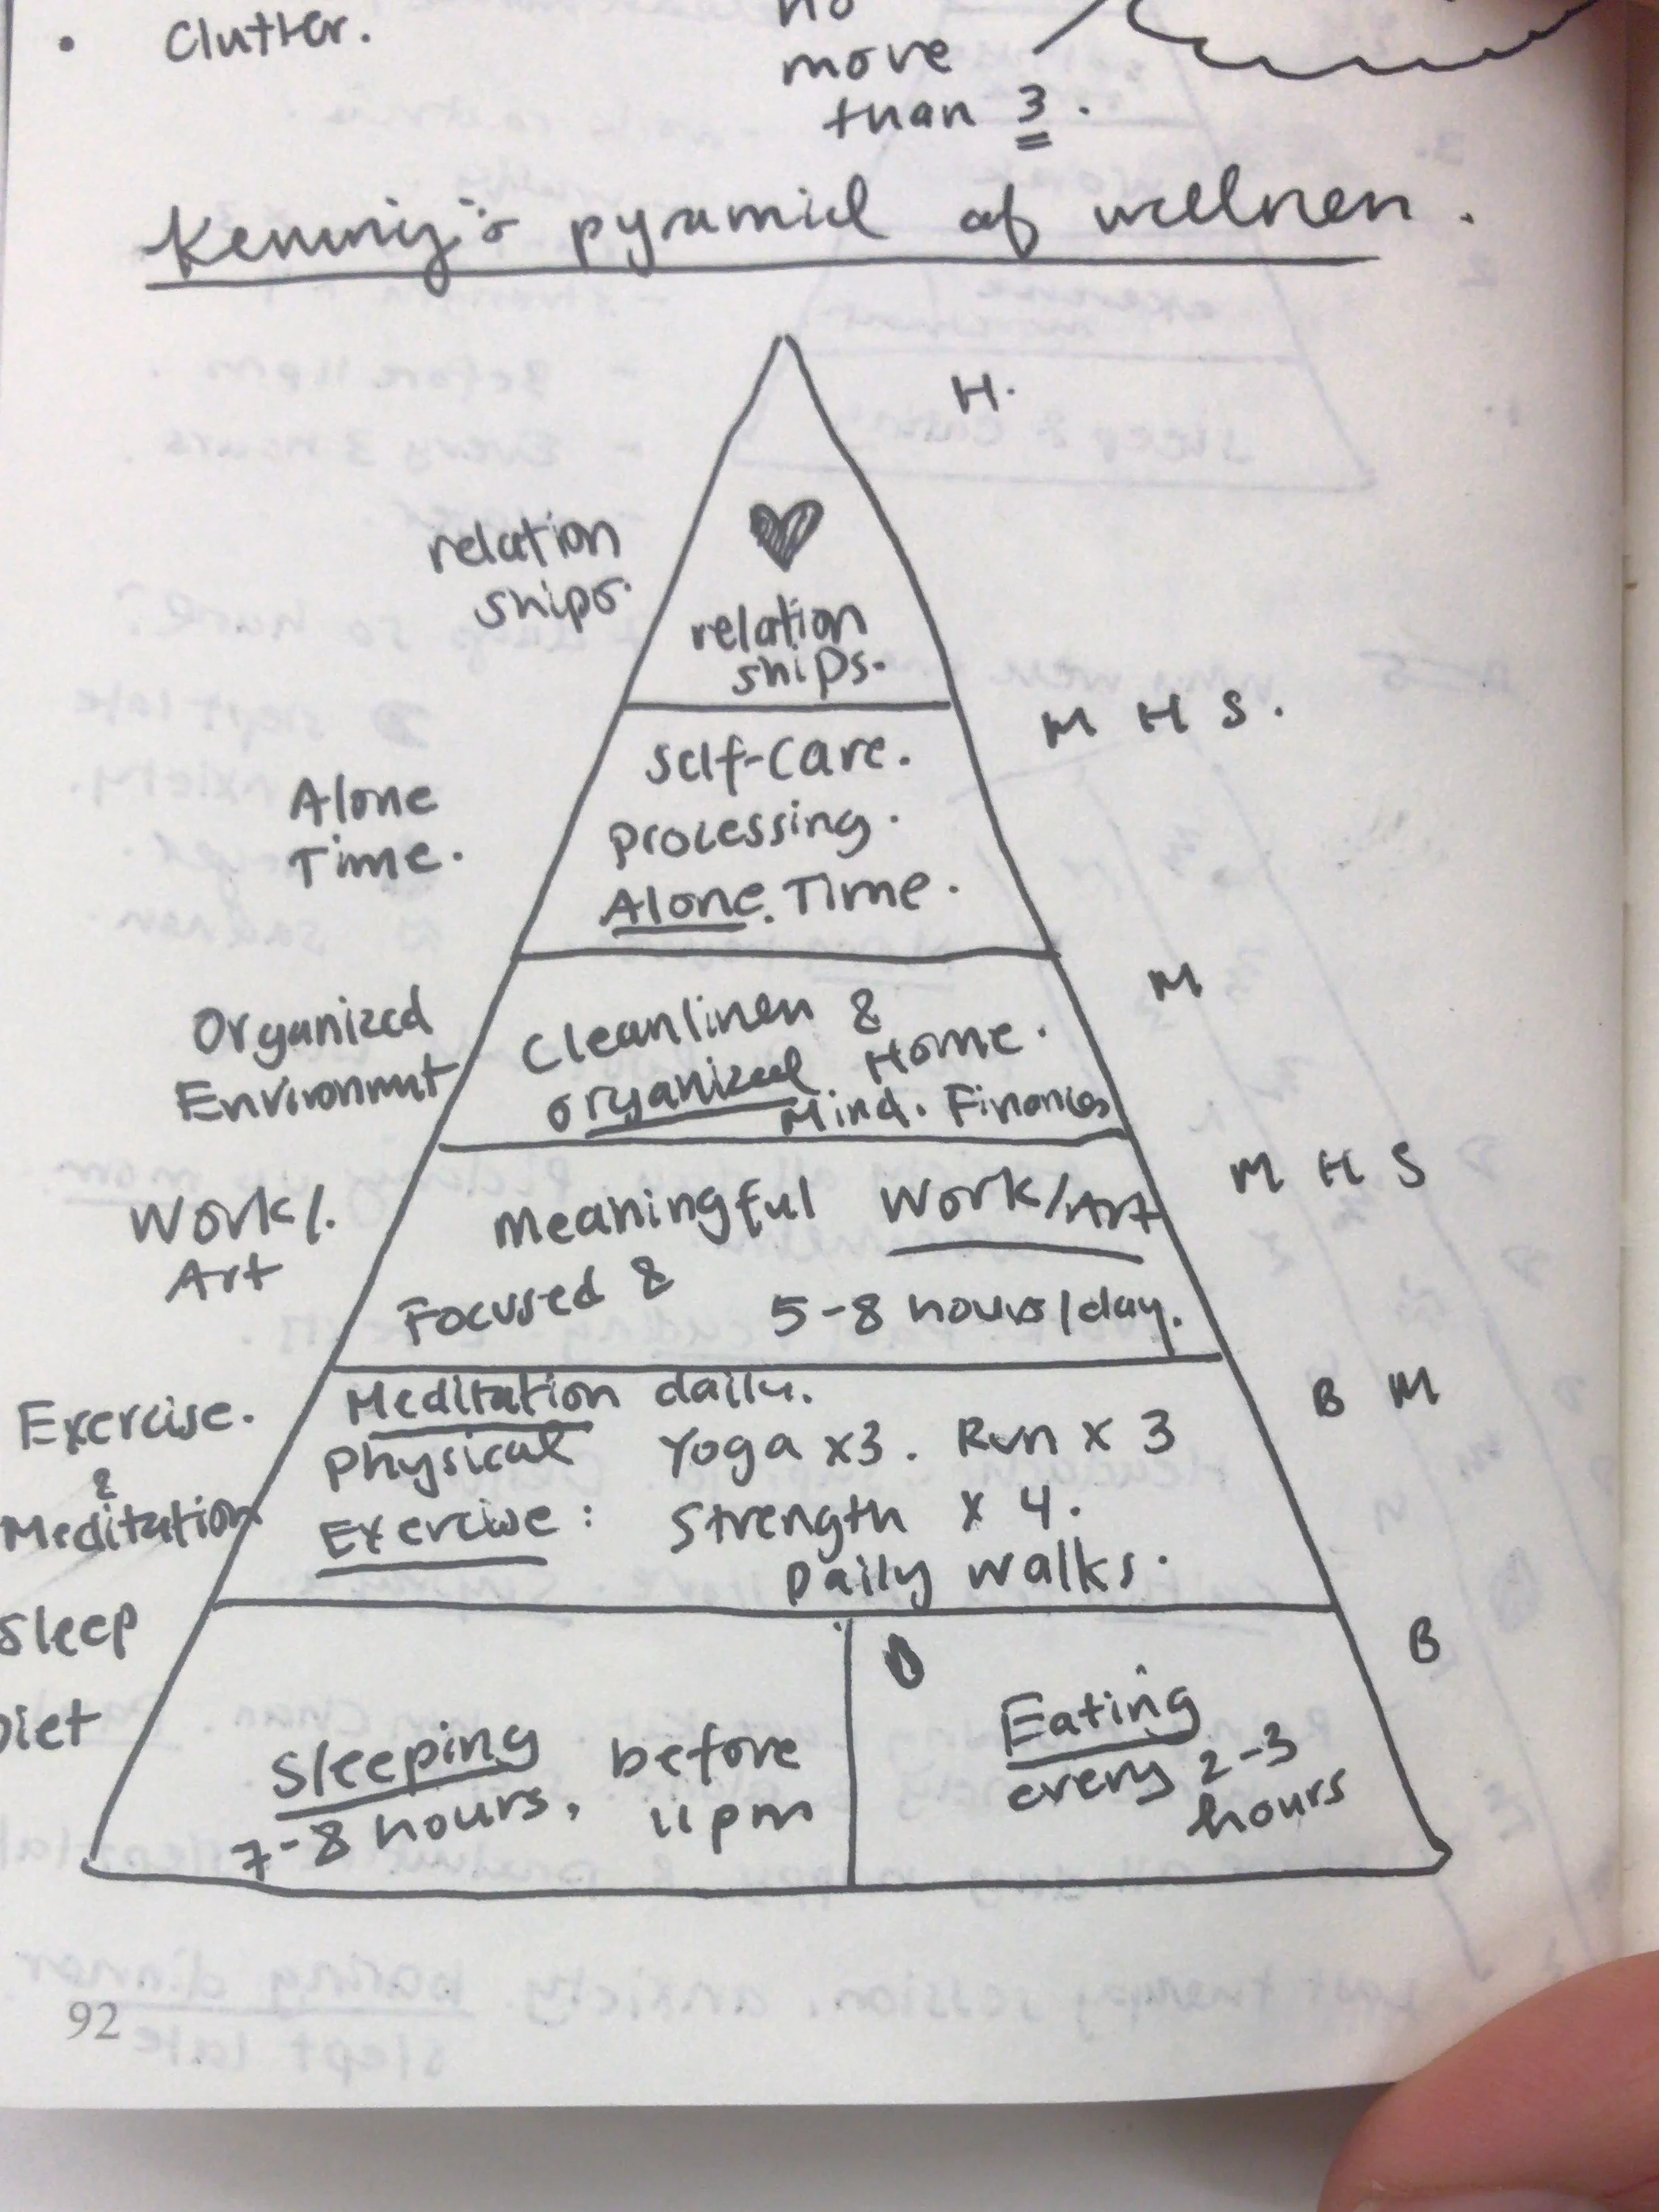 • Clutter.
no
more
than 3.
pyramid of wellness.
H.
relation
ships.
♥
relation
ships.
M H S.
Alone
Time.
Self-care.
Processing.
Alone. Time.
M
Organized
Environment
Cleanliness &
organized. Home.
Mind. Finances
M H S
Work/.
Art
Meaningful Work/Art
Focused & 5-8 hours/day.
B M
Exercise.
&
Meditation
Meditation daily.
Physical Yoga x3. Run x 3
Exercise: Strength x 4.
Daily walks.
B
Sleep
Diet
Sleeping before
7-8 hours, 11pm
Eating
every 2-3
hours
92